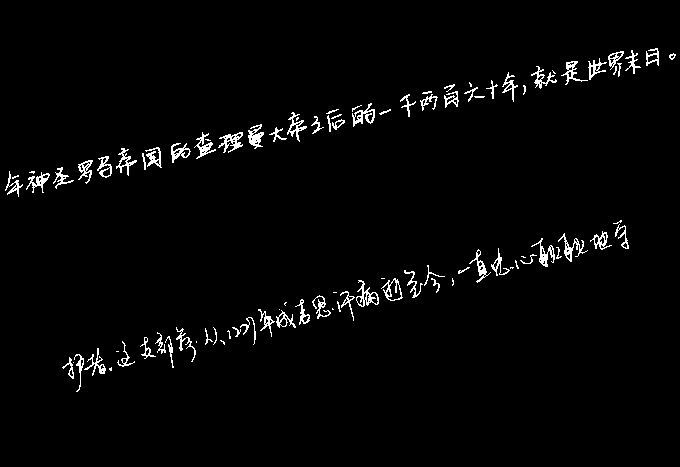 年神圣罗马帝国的查理曼大帝之后的一千两百六十年,就是世界末日。
护着。这支部落从1227年成吉思汗病逝至今,一直忠心耿耿地守